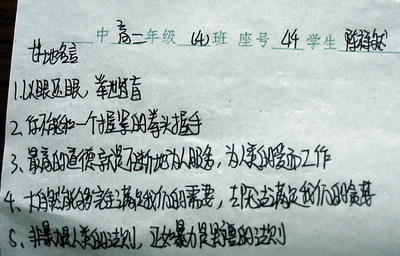 中 高二年级 (4) 班 座号 44 学生 陈
甘地名言
1.以眼还眼，举世皆盲
2.你不能和一个握紧的拳头握手
3、最高的道德就是不断地为人服务，为人类的爱而工作
4、大自然能够完全满足我们的需要，却无法满足我们的贪婪
5、非暴力是人类的法则，正如暴力是野兽的法则